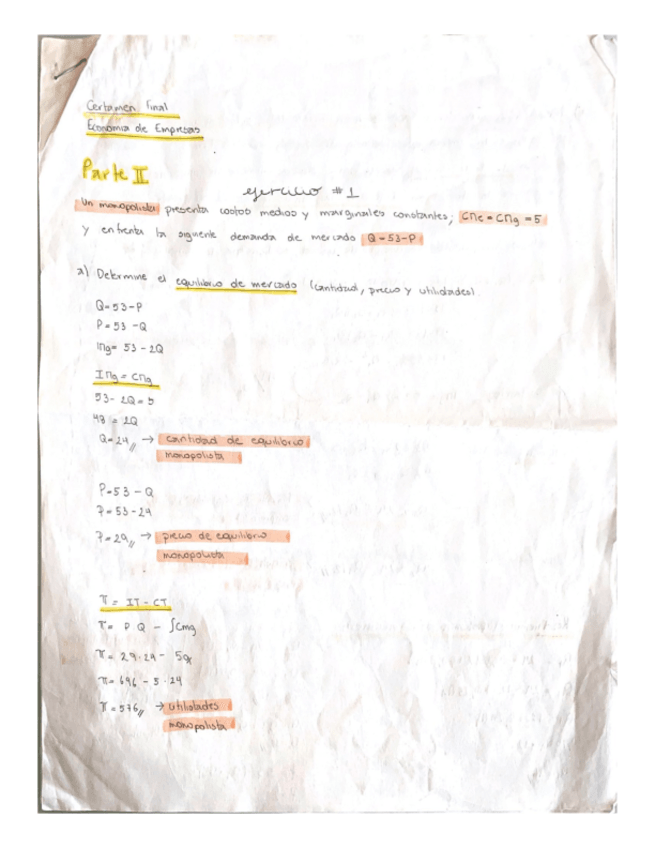 Certamen Final
Economía de Empresas
Parte II
ejercicio #1
Un monopolista presenta costos medios y marginales constantes; CMe = CMg = 5
y enfrenta la siguiente demanda de mercado Q=53-P
a) Determine el equilibrio de mercado (cantidad, precio y utilidades).
Q=53-P
P=53-Q
IMg= 53-2Q
IMg = CMg
53-2Q=5
48 = 2Q
Q=24,, → cantidad de equilibrio
monopolista
P=53-Q
P=53-24
P=29,, → precio de equilibrio
monopolista
π = IT - CT
π= P Q - ∫Cmg
π= 29·24 - 5q
π= 696 - 5·24
π=576,, → utilidades
monopolista